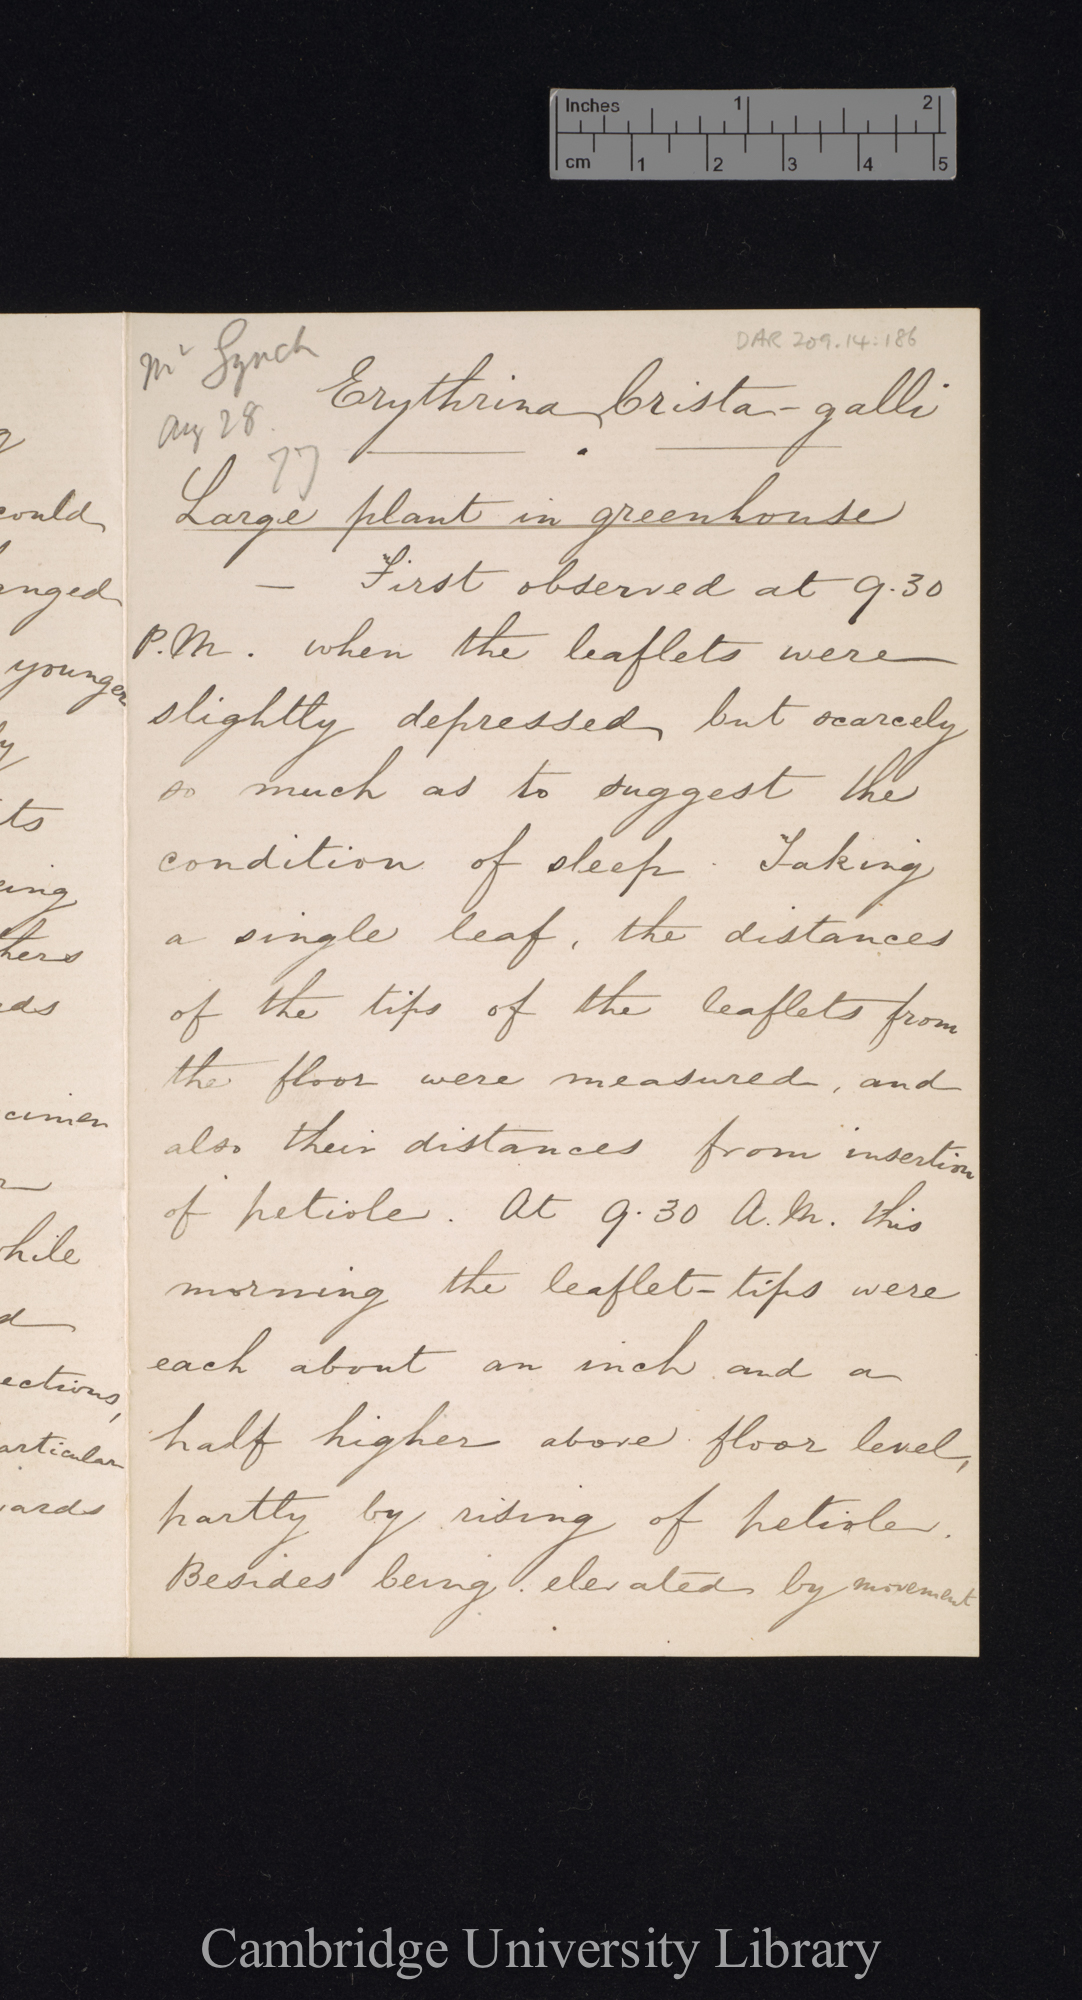 Inches 1 2
cm 1 2 3 4 5
DAR 209.14:186
Mr Lynch
Aug 28.
77
Erythrina Crista-galli
Large plant in greenhouse
— First observed at 9.30
P.M. when the leaflets were
slightly depressed but scarcely
so much as to suggest the
condition of sleep. Taking
a single leaf, the distances
of the tips of the leaflets from
the floor were measured, and
also their distances from insertion
of petiole. At 9.30 A.M. this
morning the leaflet-tips were
each about an inch and a
half higher above floor level,
partly by rising of petiole.
Besides being elevated by movement
could
younger
cimen
hile
ections,
articular
ards
Cambridge University Library